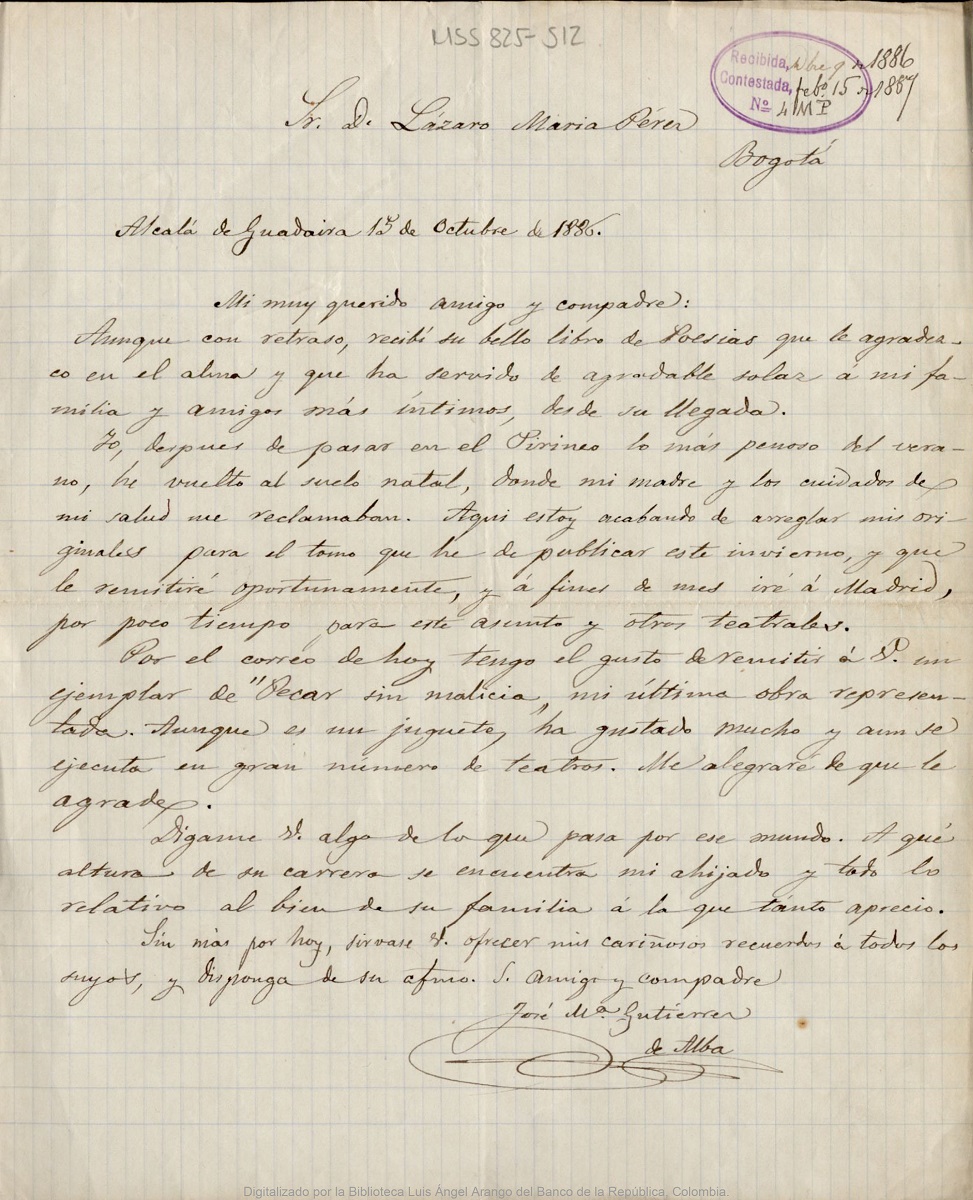 MSS 825-S12
Recibida, 9 1886
Contestada, feb.º 15 1887
Nº 4
Sr. D. Lázaro Maria Pérez
Bogotá
Alcalá de Guadaira 15 de Octubre de 1886.
Mi muy querido amigo y compadre:
Aunque con retraso, recibí su bello libro de Poesias que le agradez-
co en el alma y que ha servido de agradable solaz á mi fa-
milia y amigos más íntimos, desde su llegada.
Yo, despues de pasar en el Pirineo lo más penoso del vera-
no, he vuelto al suelo natal, donde mi madre y los cuidados de
mi salud me reclamaban. Aqui estoy acabando de arreglar mis ori-
ginales para el tomo que he de publicar este invierno, y que
le remitiré oportunamente, y á fines de mes iré á Madrid,
por poco tiempo para este asunto y otros teatrales.
Por el correo de hoy tengo el gusto de remitir á V. un
ejemplar de "Pecar sin malicia", mi última obra represen-
tada. Aunque es un juguete, ha gustado mucho y aun se
ejecuta en gran número de teatros. Me alegraré de que le
agrade.
Digame V. algo de lo que pasa por ese mundo. A qué
altura de su carrera se encuentra mi ahijado y todo lo
relativo al bien de su familia á la que tánto aprecio.
Sin más por hoy, sirvase V. ofrecer mis cariñosos recuerdos á todos los
suyos, y disponga de su afmo. S. amigo y compadre
José Mª Gutiérrez
de Alba
Digitalizado por la Biblioteca Luis Ángel Arango del Banco de la República, Colombia.